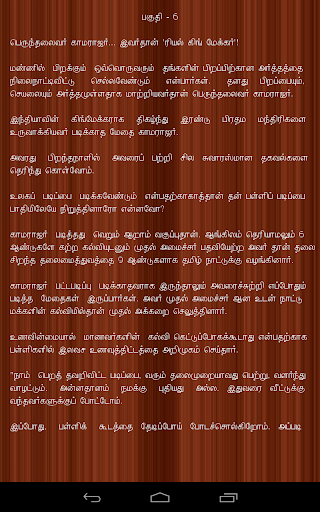 பகுதி - 6
பெருந்தலைவர் காமராஜர்... இவர்தான் 'ரியல் கிங் மேக்கர்'!
மண்ணில் பிறக்கும் ஒவ்வொருவரும் தங்களின் பிறப்பிற்கான அர்த்தத்தை
நிலைநாட்டிவிட்டு செல்லவேண்டும் என்பார்கள். தனது பிறப்பையும்,
செயலையும் அர்த்தமுள்ளதாக மாற்றியவர்தான் பெருந்தலைவர் காமராஜர்.
இந்தியாவின் கிங்மேக்கராக திகழ்ந்து இரண்டு பிரதம மந்திரிகளை
உருவாக்கியவர் படிக்காத மேதை காமராஜர்.
அவரது பிறந்தநாளில் அவரைப் பற்றி சில சுவாரஸ்மான தகவல்களை
தெரிந்து கொள்வோம்.
உலகப் படிப்பை படிக்கவேண்டும் என்பதற்காகாத்தான் தன் பள்ளிப் படிப்பை
பாதியிலேயே நிறுத்தினாரோ என்னவோ?
காமராஜர் படித்தது வெறும் ஆறாம் வகுப்புதான். ஆங்கிலம் தெரியாமலும் 6
ஆண்டுகளே கற்ற கல்வியுடனும் முதல் அமைச்சர் பதவியேற்ற அவர் தான் தலை
சிறந்த தலைமைத்துவத்தை 9 ஆண்டுகளாக தமிழ் நாட்டுக்கு வழங்கினார்.
காமராஜர் பட்டபடிப்பு படிக்காதவராக இருந்தாலும் அவரைச்சுற்றி எப்போதும்
படித்த மேதைகள் இருப்பார்கள். அவர் முதல் அமைச்சர் ஆன உடன் நாட்டு
மக்களின் கல்வியில்தான் முதல் அக்கறை செலுத்தினார்.
உணவின்மையால் மாணவர்களின் கல்வி கெட்டுப்போகக்கூடாது என்பதற்காக
பள்ளிகளில் இலவச உணவுத்திட்டத்தை அறிமுகம் செய்தார்.
"நாம் பெறத் தவறிவிட்ட படிப்பை, வரும் தலைமுறையாவது பெற்று, வளர்ந்து
வாழட்டும். அன்னதானம் நமக்கு புதியது அல்ல. இதுவரை வீட்டுக்கு
வந்தவர்களுக்குப் போட்டோம்.
இப்போது. பள்ளிக் கூடத்தை தேடிப்போய் போடச்சொல்கிறோம். அப்படி